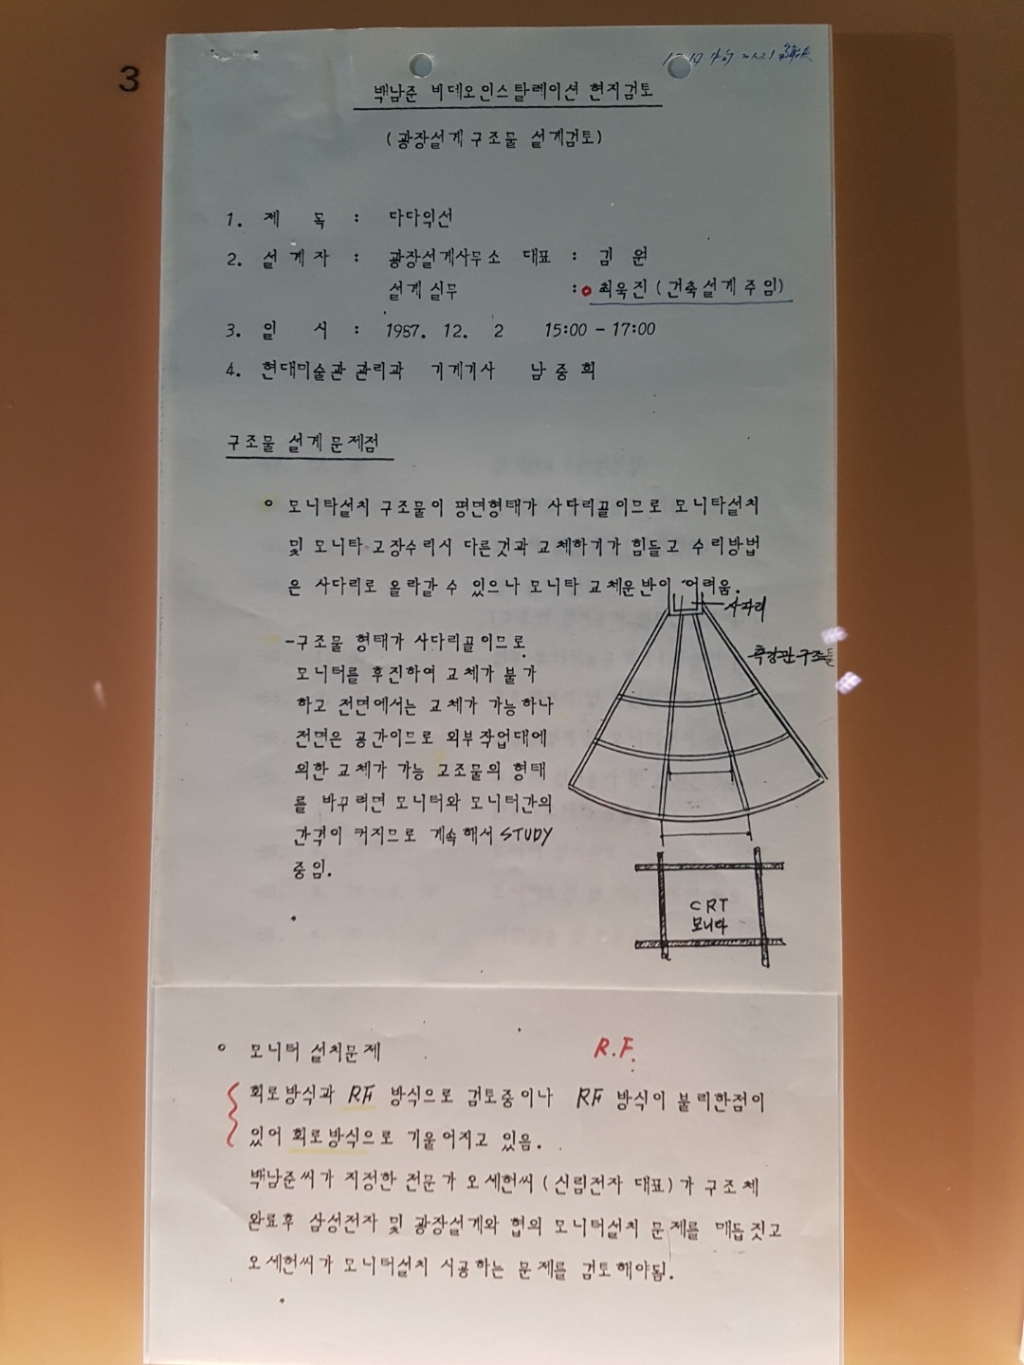 3
백남준 비데오인스탈레이션 현지검토
(광장설계구조물 설계검토)
1. 제 목 : 다다익선
2. 설계자 : 광장설계사무소 대표 : 김 원
설계실무 : 최욱진 (건축설계주임)
3. 일 시 : 1987. 12. 2 15:00 - 17:00
4. 현대미술관 관리과 기계기사 남중희
구조물 설계문제점
o 모니타설치 구조물이 평면형태가 사다리꼴이므로 모니타설치
및 모니타 고장수리시 다른것과 교체하기가 힘들고 수리방법
은 사다리로 올라갈 수 있으나 모니타 교체운반이 어려움.
사다리
- 구조물 형태가 사다리꼴이므로
모니터를 후진하여 교체가 불가
하고 전면에서는 교체가 가능하나
전면은 공간이므로 외부작업대에
의한 교체가 가능 구조물의 형태
를 바꾸려면 모니터와 모니터간의
간격이 커지므로 계속해서 STUDY
중임.
CRT
모니타
o 모니터 설치문제
R.F.
회로방식과 RF 방식으로 검토중이나 RF 방식이 불리한점이
있어 회로방식으로 기울어지고 있음.
백남준씨가 지정한 전문가 오세헌씨 (신림전자 대표)가 구조체
완료후 삼성전자 및 광장설계와 협의 모니터설치 문제를 매듭짓고
오세헌씨가 모니터설치 시공하는 문제를 검토해야됨.